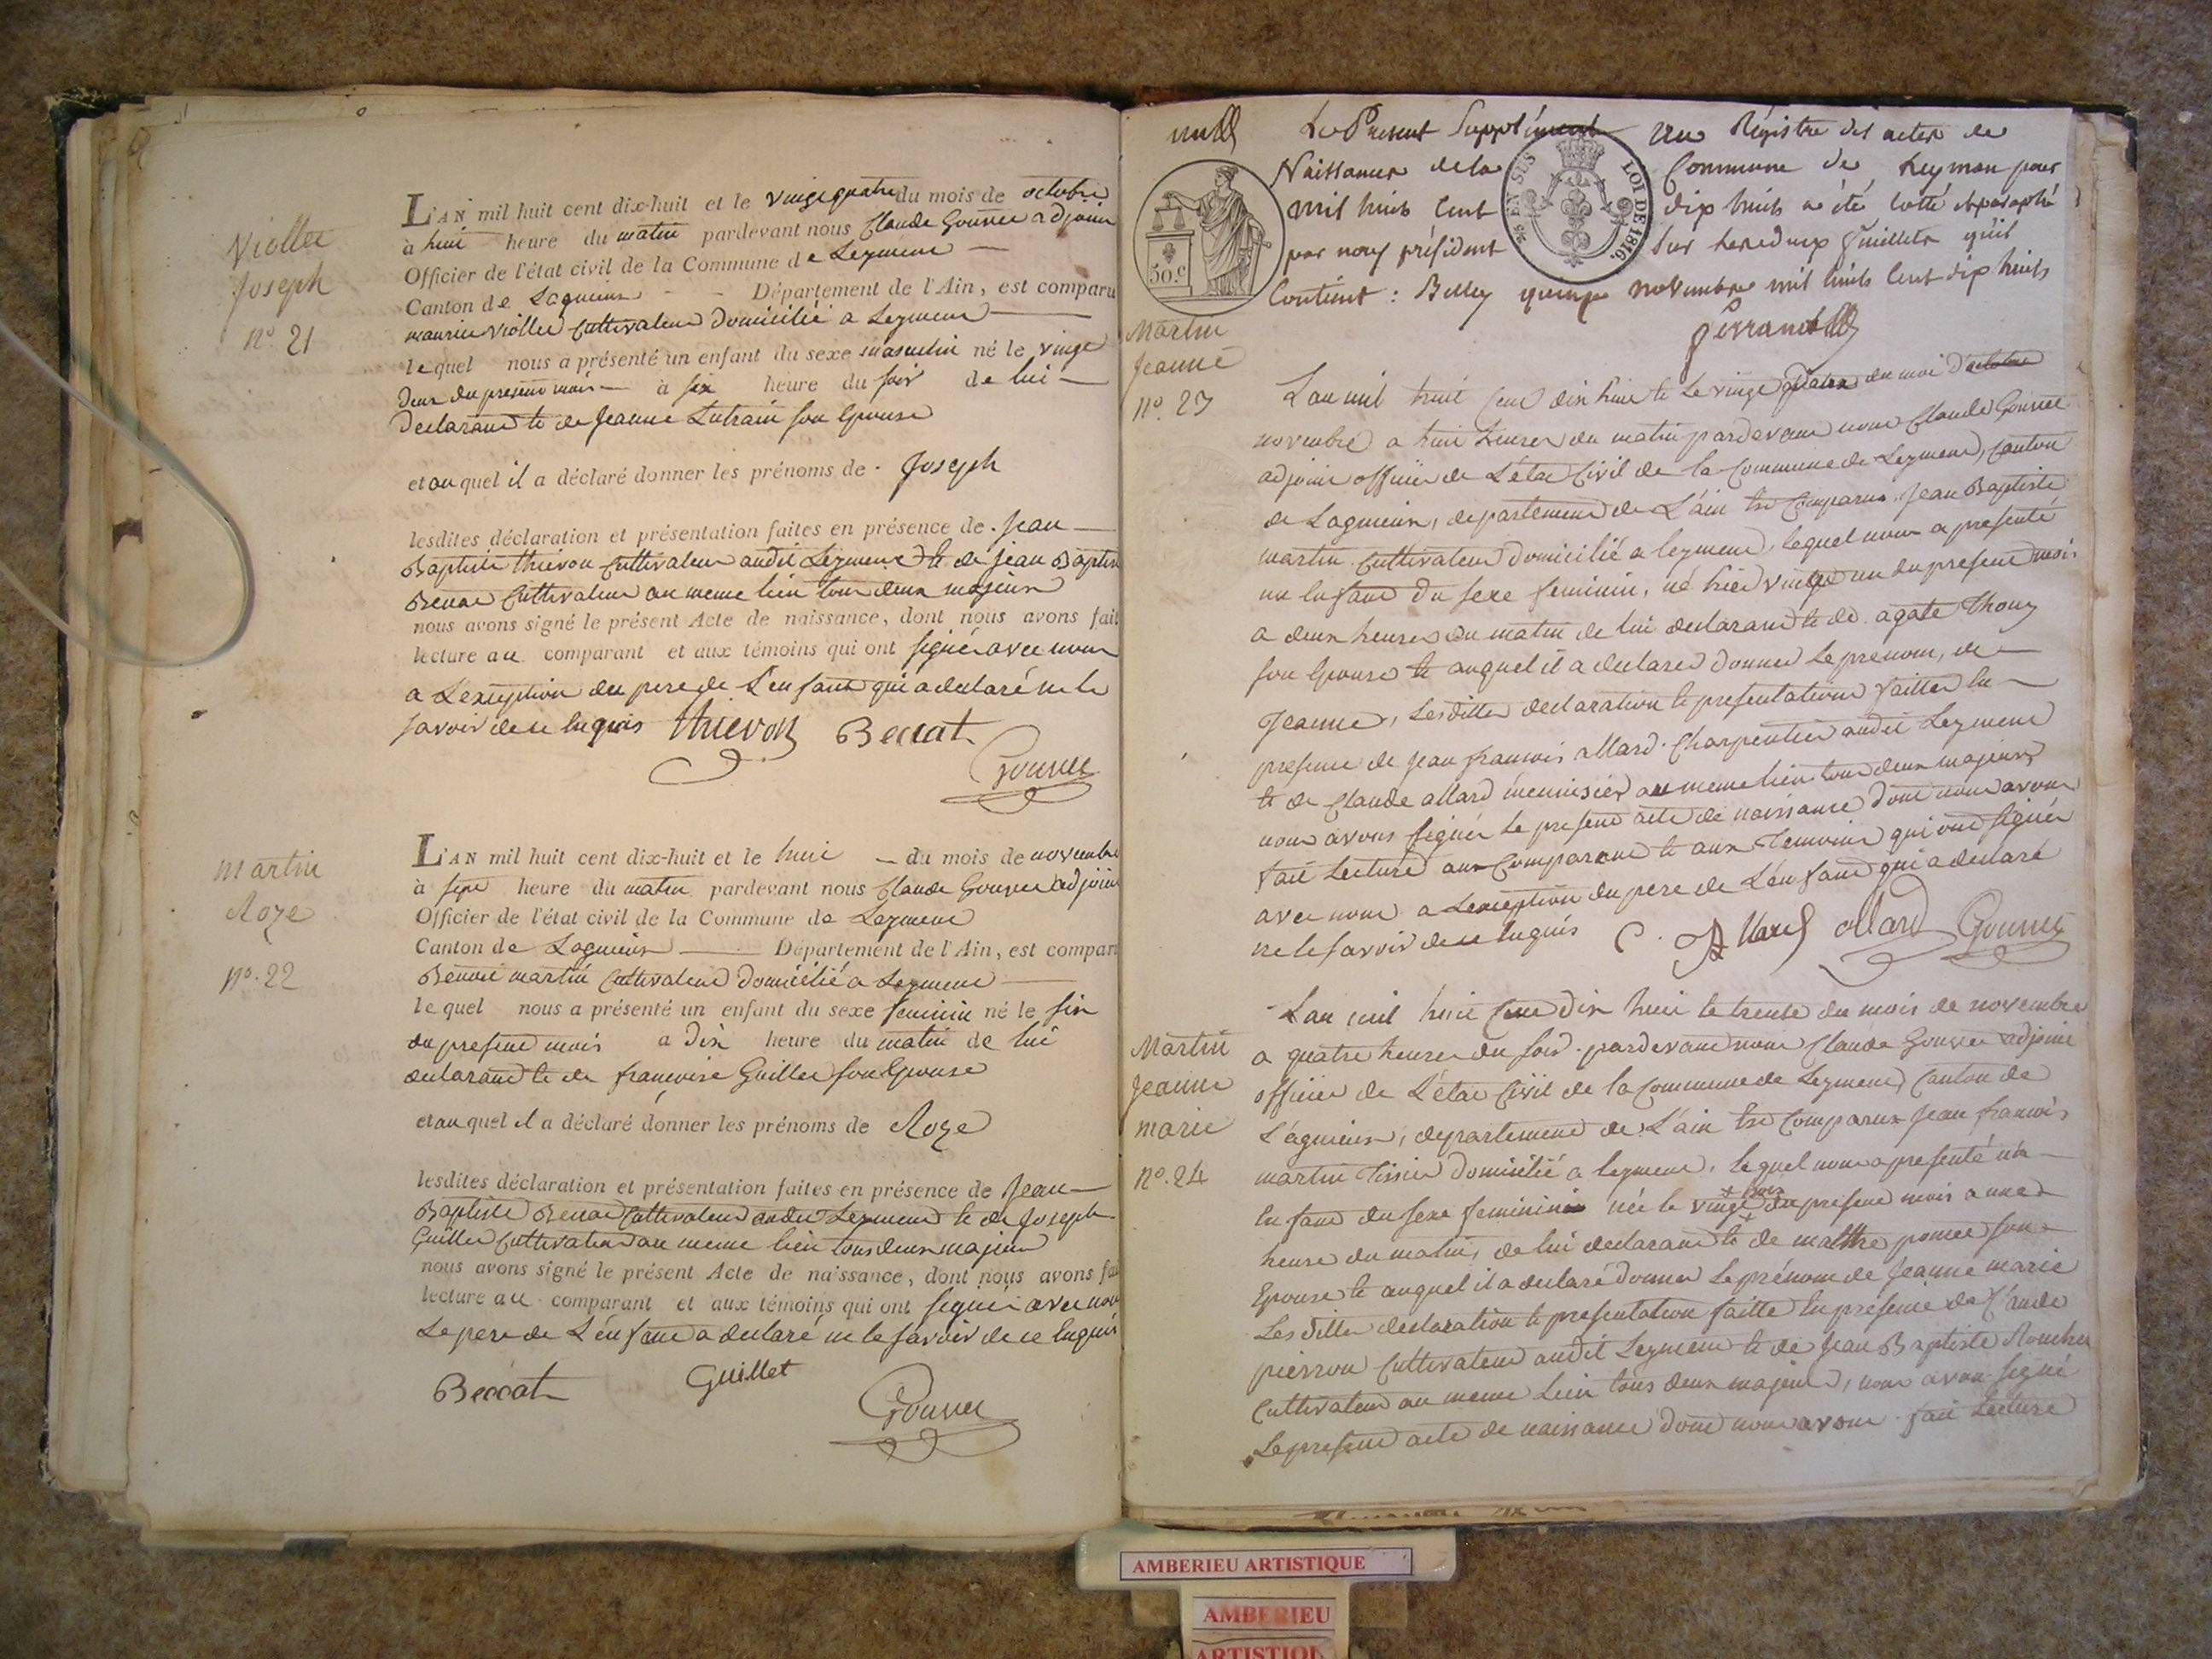 Viollet
Joseph
n.º 21
L'AN mil huit cent dix-huit et le vingt quatre du mois de octobre
à huit heure du matin pardevant nous Claude Gouvee adjoint
Officier de l'état civil de la Commune de Leyment
Canton de Lagnieux Département de l'Ain, est comparu
maurice viollet Cultivateur domicilié a Leyment
lequel nous a présenté un enfant du sexe masculin né le vingt
deux du present mois à six heure du soir de lui
declarant et de Jeanne son Epouse
et au quel il a déclaré donner les prénoms de Joseph
lesdites déclaration et présentation faites en présence de Jean
Baptiste thievon Cultivateur audit Leyment et de jean Baptiste
Cultivateur au meme lieu tous deux majeurs
nous avons signé le présent Acte de naissance, dont nous avons fait
lecture au comparant et aux témoins qui ont signés avec nous
a L'exception du pere de L'enfant qui a declaré ne le
savoir de ce Enquis thievon Beccat
Gouvee
martin
Roze
n.º 22
L'AN mil huit cent dix-huit et le huit du mois de novembre
à sept heure du matin pardevant nous Claude Gouvee adjoint
Officier de l'état civil de la Commune de Leyment
Canton de Lagnieux Département de l'Ain, est comparu
Benoit martin Cultivateur domicilié a Leyment
lequel nous a présenté un enfant du sexe feminin né le six
du present mois a Dix heure du matin de lui
declarant et de francoise Guillet son Epouse
et au quel il a déclaré donner les prénoms de Roze
lesdites déclaration et présentation faites en présence de Jean
Baptiste Cultivateur audit Leyment et de Joseph
Guillet Cultivateur au meme lieu tous deux majeurs
nous avons signé le présent Acte de naissance, dont nous avons fait
lecture au comparant et aux témoins qui ont signés avec nous
Le pere de L'enfant a declaré ne le savoir de ce Enquis
Beccat Guillet
Gouvee
Le Présent Supplément au Régistre des actes de
Naissances de la Commune de Leyment pour
mil huit Cent dix huit a été cotté et paraphé
par nous président sur feuillets qu'il
Contient : Belley quinze novembre mil huit Cent dix huit
EN SUS LOI DE 1816.
50.c
Martin
Jeanne
n.º 23
L'an mil huit Cent dix huit et Le vingt du moi d'octobre
novembre a huit heures du matin pardevant nous Claude Gouvee
adjoint officier de L'état Civil de la Commune de Leyment, Canton
de Lagnieux, departement de L'ain est Comparus Jean Baptiste
martin Cultivateur domicilié a leyment, lequel nous a presenté
un Enfant du sexe feminin, né hier vingt un du present mois
a deux heures du matin de lui declarant et de agate thouy
son Epouse et auquel il a declarer donner Le prenom, de
Jeanne, Lesditte declaration et presentations faittes En
presence de jean francois allard Charpentier audit Leyment
et de Claude allard menuisier au meme lieu tous deux majeurs
nous avons signér Le present acte de naissance dont nous avons
fait Lecture aux Comparant et aux Temoins qui ont signér
avec nous a L'exception du pere de L'enfant qui a declaré
ne le savoir de ce Enquis C. Allard allard Gouvee
Martin
jeanne
marie
n.º 24
L'an mil huit Cent dix huit et trente du mois de novembre
a quatre heures du soir pardevant nous Claude Gouvee adjoint
officier de L'état Civil de la Commune de Leyment, Canton de
Lagnieux, departement de L'ain est Comparus Jean francois
martin Tissier domicilié a leyment, lequel nous a presenté un
Enfant du sexe feminin née le vingt du present mois a une
heure du matin, de lui declarant et de son
Epouse et auquel il a declaré donner Le prénom de Jeanne marie
Lesditte declaration et presentation faitte En presence de Claude
pierron Cultivateur audit Leyment et de Jean Baptiste
Cultivateur au meme Lieu tous deux majeurs, nous avons signé
Le present acte de naissance dont nous avons fait Lecture
AMBERIEU ARTISTIQUE
AMBERIEU
ARTISTIQ